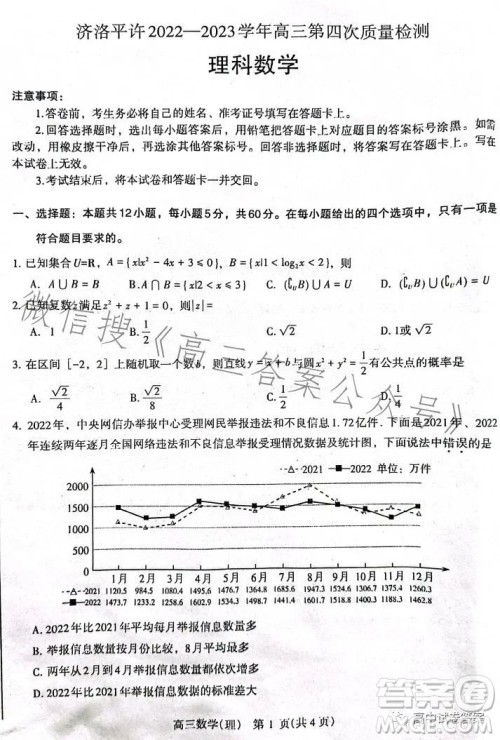 济洛平许2022—2023学年高三第四次质量检测
理科数学
注意事项：
1.答卷前，考生务必将自己的姓名、准考证号填写在答题卡上。
2.回答选择题时，选出每小题答案后，用铅笔把答题卡对应题目的答案标号涂黑。如需
改动，用橡皮擦干净后，再选涂其他答案标号。回答非选择题时，将答案写在答题卡上。写在
本试卷上无效。
3.考试结束后，将本试卷和答题卡一并交回。
一、选择题：本题共12小题，每小题5分，共60分。在每小题给出的四个选项中，只有一项是
符合题目要求的。
1.已知集合U=R，A={x|x²-4x+3≤0}，B={x|1<log₂x<2}，则
A. A∪B=A B. A∩B=B C. (∁UB)∪A=U D. (∁UA)∪B=U
2.已知复数z满足z²+z+1=0，则|z|=
A. 1 B. 1/2 C. √2 D. 1或√2
3.在区间[-2，2]上随机取一个数b，则直线y=x+b与圆x²+y²=1/2有公共点的概率是
A. √2/4 B. √2/8 C. 1/2 D. 1/4
4. 2022年，中央网信办举报中心受理网民举报违法和不良信息1.72亿件．下面是2021年、2022
年连续两年逐月全国网络违法和不良信息举报受理情况数据及统计图，下面说法中错误的是
2021 2022 单位：万件
2000
1500
1000
500
0
1月 2月 3月 4月 5月 6月 7月 8月 9月 10月 11月 12月
2021 1120.5 984.5 1080.4
2022 1473.7 1233.2 1260.2 1602.9 1462.8
A. 2022年比2021年平均每月举报信息数量多
B. 2022年举报信息数量最多的月份是4月份
C. 两年从2月到4月举报信息数量都依次增多
D. 2022年比2021年举报信息数据的标准差大
高三数学(理) 第1页(共4页)
微信搜《高三答案公众号》
高中试卷答案